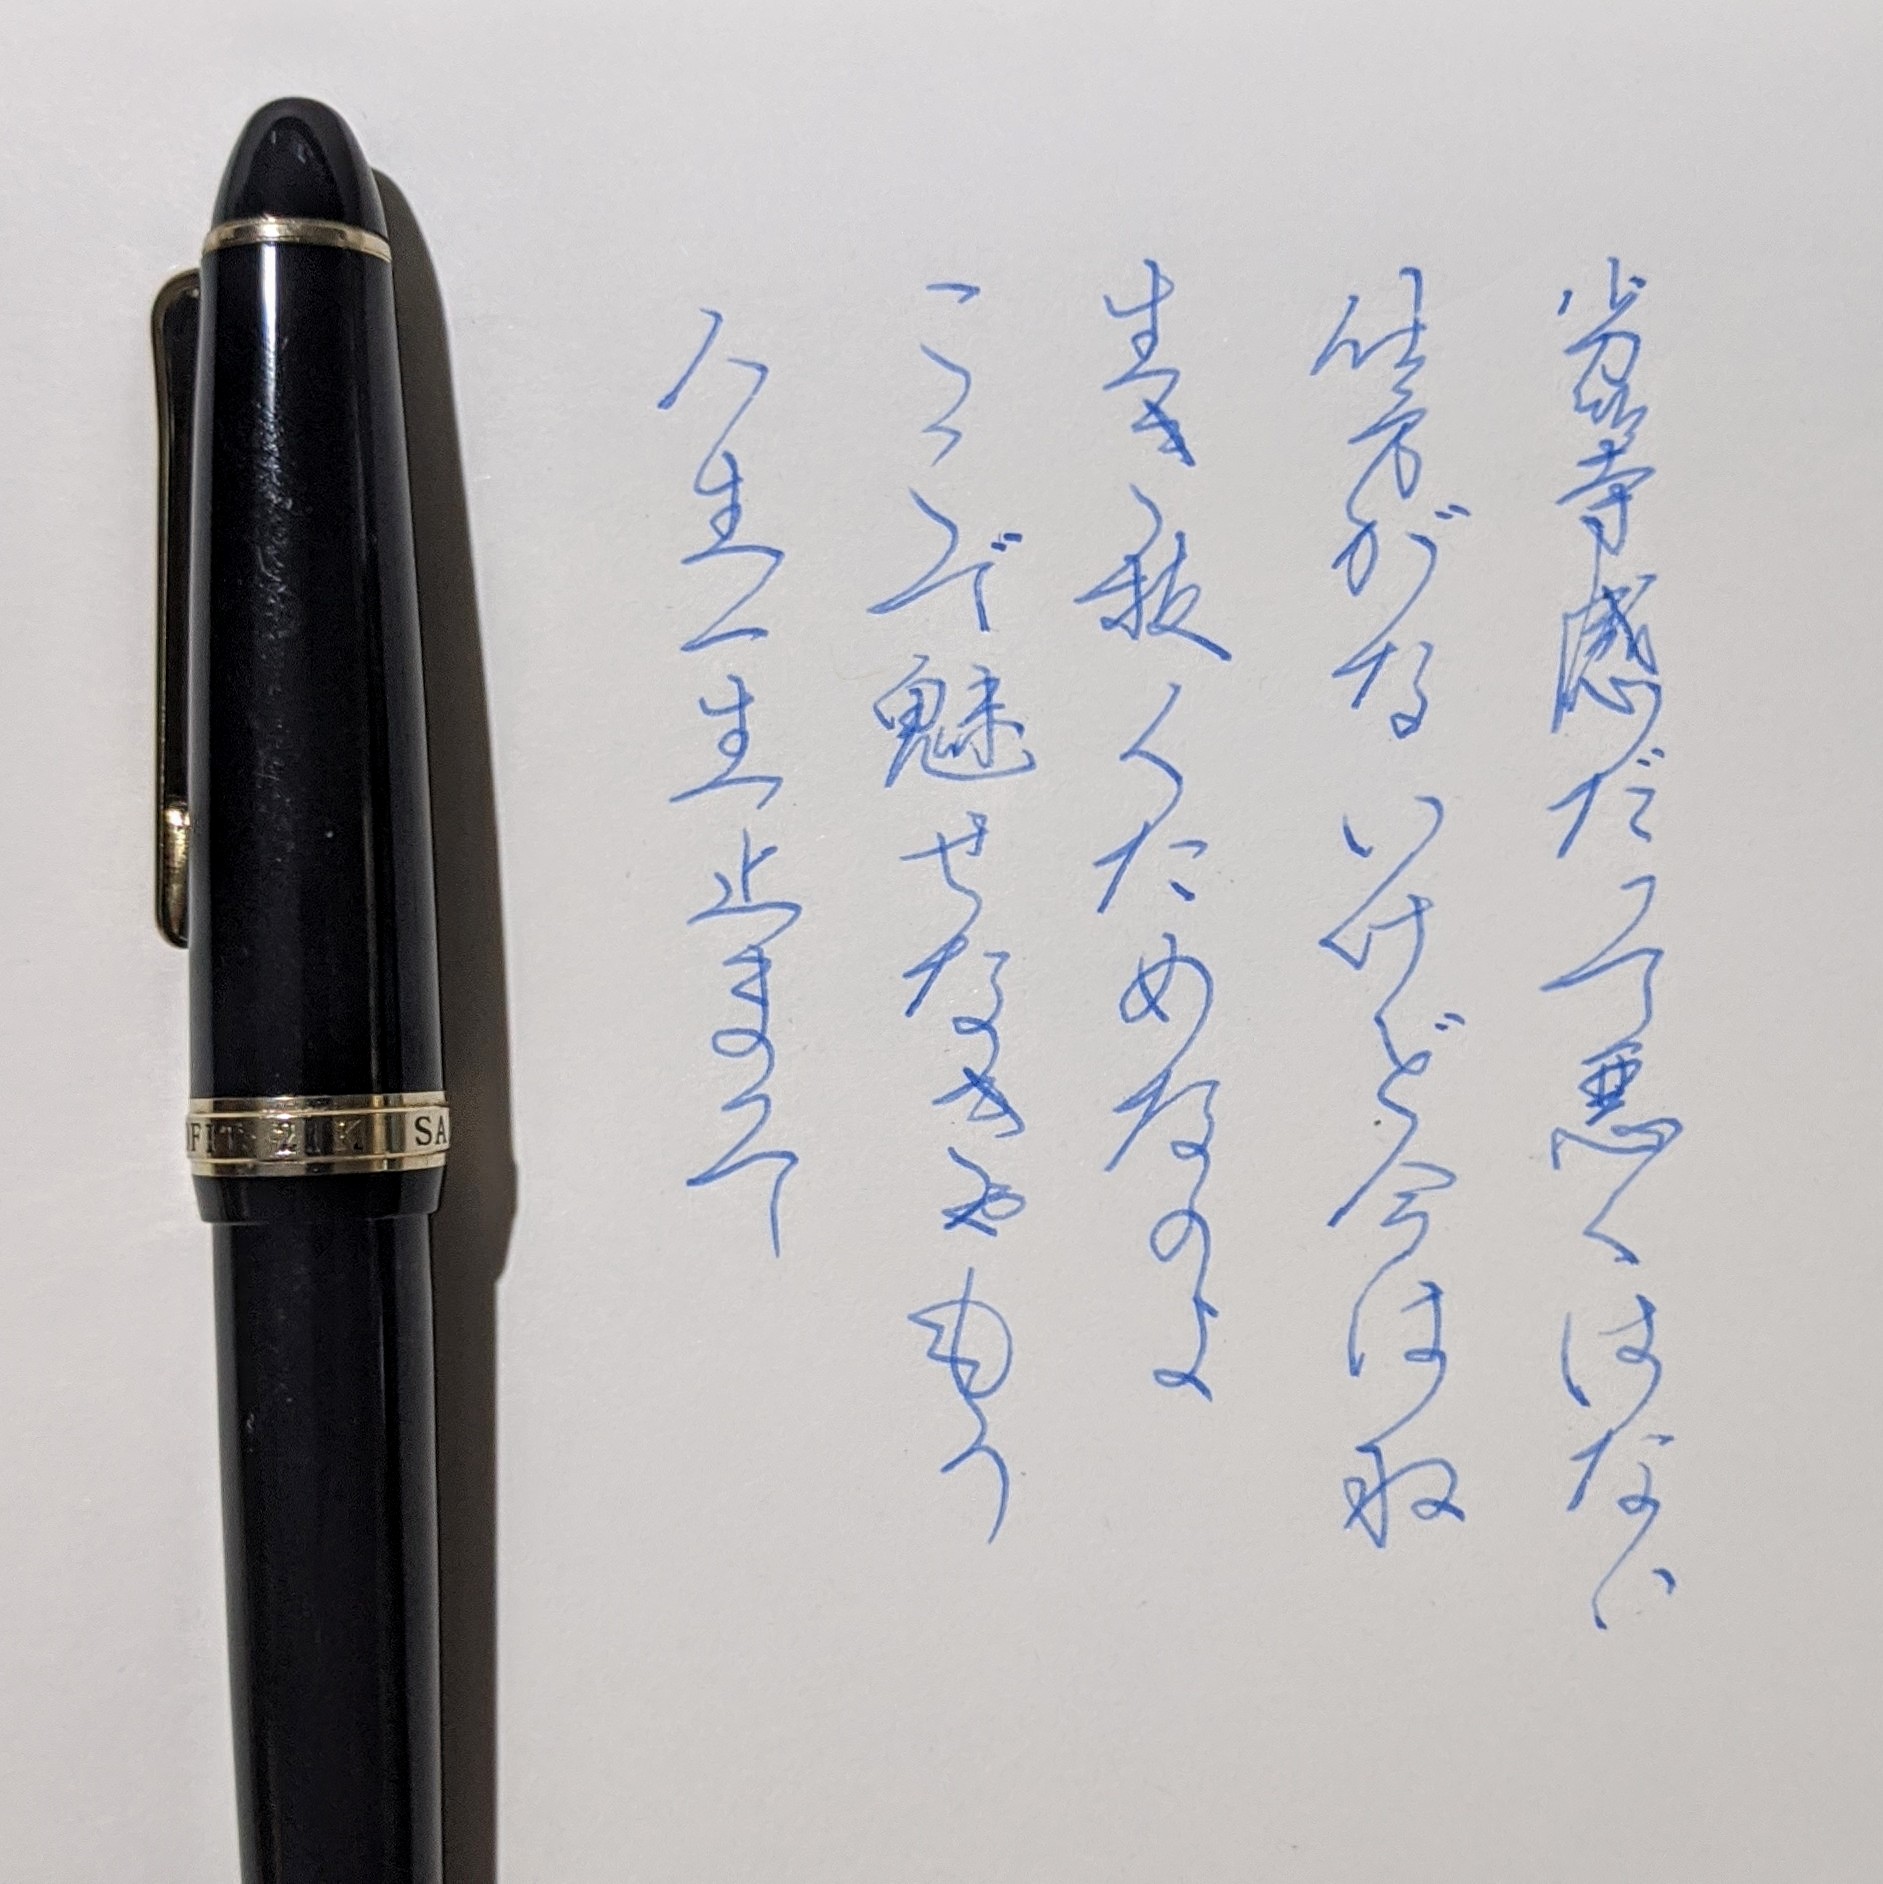 劣等感だって悪くはない
仕方がないけど今はね
生き抜くためなのよ
ここで魅せなきゃもう
人生一生止まって
OFIT 21K SA